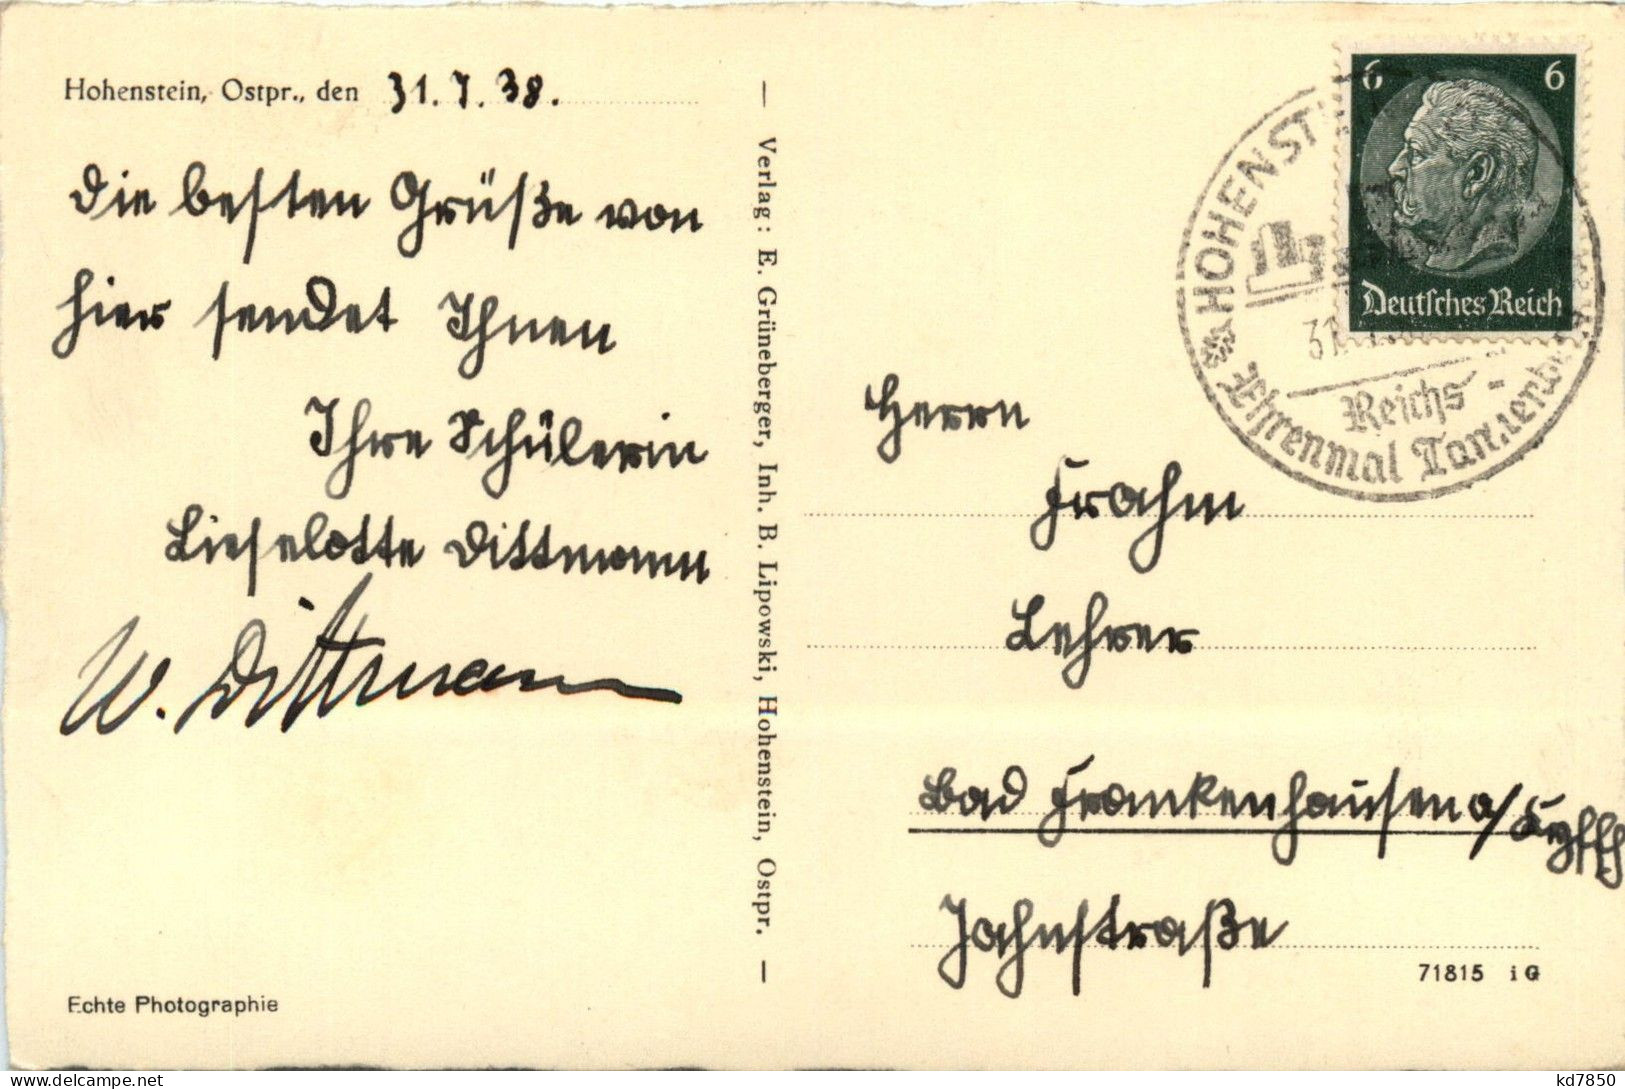 Hohenstein, Ostpr., den 31.7.38.
Die besten Grüße von
hier sendet Ihnen
Ihre Schülerin
Lieselotte Dittmann
W. Dittmann
Echte Photographie
— Verlag: E. Grüneberger, Inh. B. Lipowski, Hohenstein, Ostpr. —
6 6
Deutsches Reich
HOHENST
31
Reichs-
Ehrenmal
Herrn
Frahm
Lehrer
Bad Frankenhausen a/Kyffh
Jahnstraße
71815 iG
kd7850